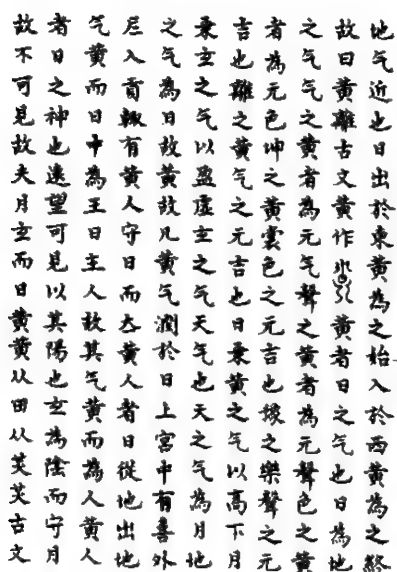 地气近也日出於東黃為之始入於西黃為之終
故曰黃離古文黃作黃者日之气也日為地
之气气之黃者為元气聲之黃者為元聲色之黃
者為元色坤之黃雲色之元吉也之樂聲之元
吉也離之黃气之元吉也日秉黃之气以高下月
秉玄之气以盈虛玄之气天气也天之气為月地
之气為日故黃故凡黃气潤於日上宮中有喜外
𡰥入貢輙有黃人守日而黃人者日從地出地
气黃而日中為王日主人故其气黃而為人黃人
者日之神也遠望可見以其陽也玄為陰而守月
故不可見故夫月玄而日黃黃从田从炗炗古文